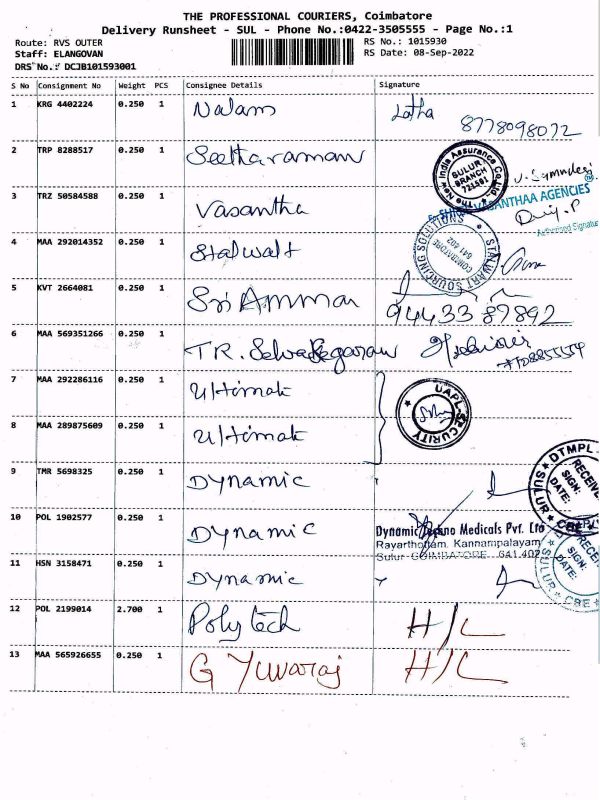 THE PROFESSIONAL COURIERS, Coimbatore
Delivery Runsheet - SUL - Phone No.:0422-3505555 - Page No.:1
Route: RVS OUTER RS No.: 1015930
Staff: ELANGOVAN RS Date: 08-Sep-2022
DRS No.: DCJB101593001
S No Consignment No Weight PCS Consignee Details Signature
1 KRG 4402224 0.250 1 Nalam Latha
8778098072
2 TRP 8288517 0.250 1 Seetharaman
The New India Assurance Co. Ltd.
SULUR
BRANCH
721501
3 TRZ 50584588 0.250 1 Vasantha
VASANTHAA AGENCIES
Authorised Signature
4 MAA 292014352 0.250 1 Stalwalt
STALWART SOURCING SOLUTIONS
COIMBATORE
641 402
5 KVT 2664081 0.250 1 Sri Amman
94433 87892
6 MAA 569351266 0.250 1 T.R.
7 MAA 292286116 0.250 1 Ultimate
UAPL-SECURITY
8 MAA 289875609 0.250 1 Ultimate
9 TMR 5698325 0.250 1 Dynamic
DTMPL
RECEIVED
SIGN:
DATE:
SULUR
CBE
10 POL 1902577 0.250 1 Dynamic
Dynamic Techno Medicals Pvt. Ltd
Rayarthottam, Kannampalayam
Sulur COIMBATORE 641 402
11 HSN 3158471 0.250 1 Dynamic
SIGN:
DATE:
SULUR
CBE
12 POL 2199014 2.700 1 Polytech H/C
13 MAA 565926655 0.250 1 G Yuvaraj H/C